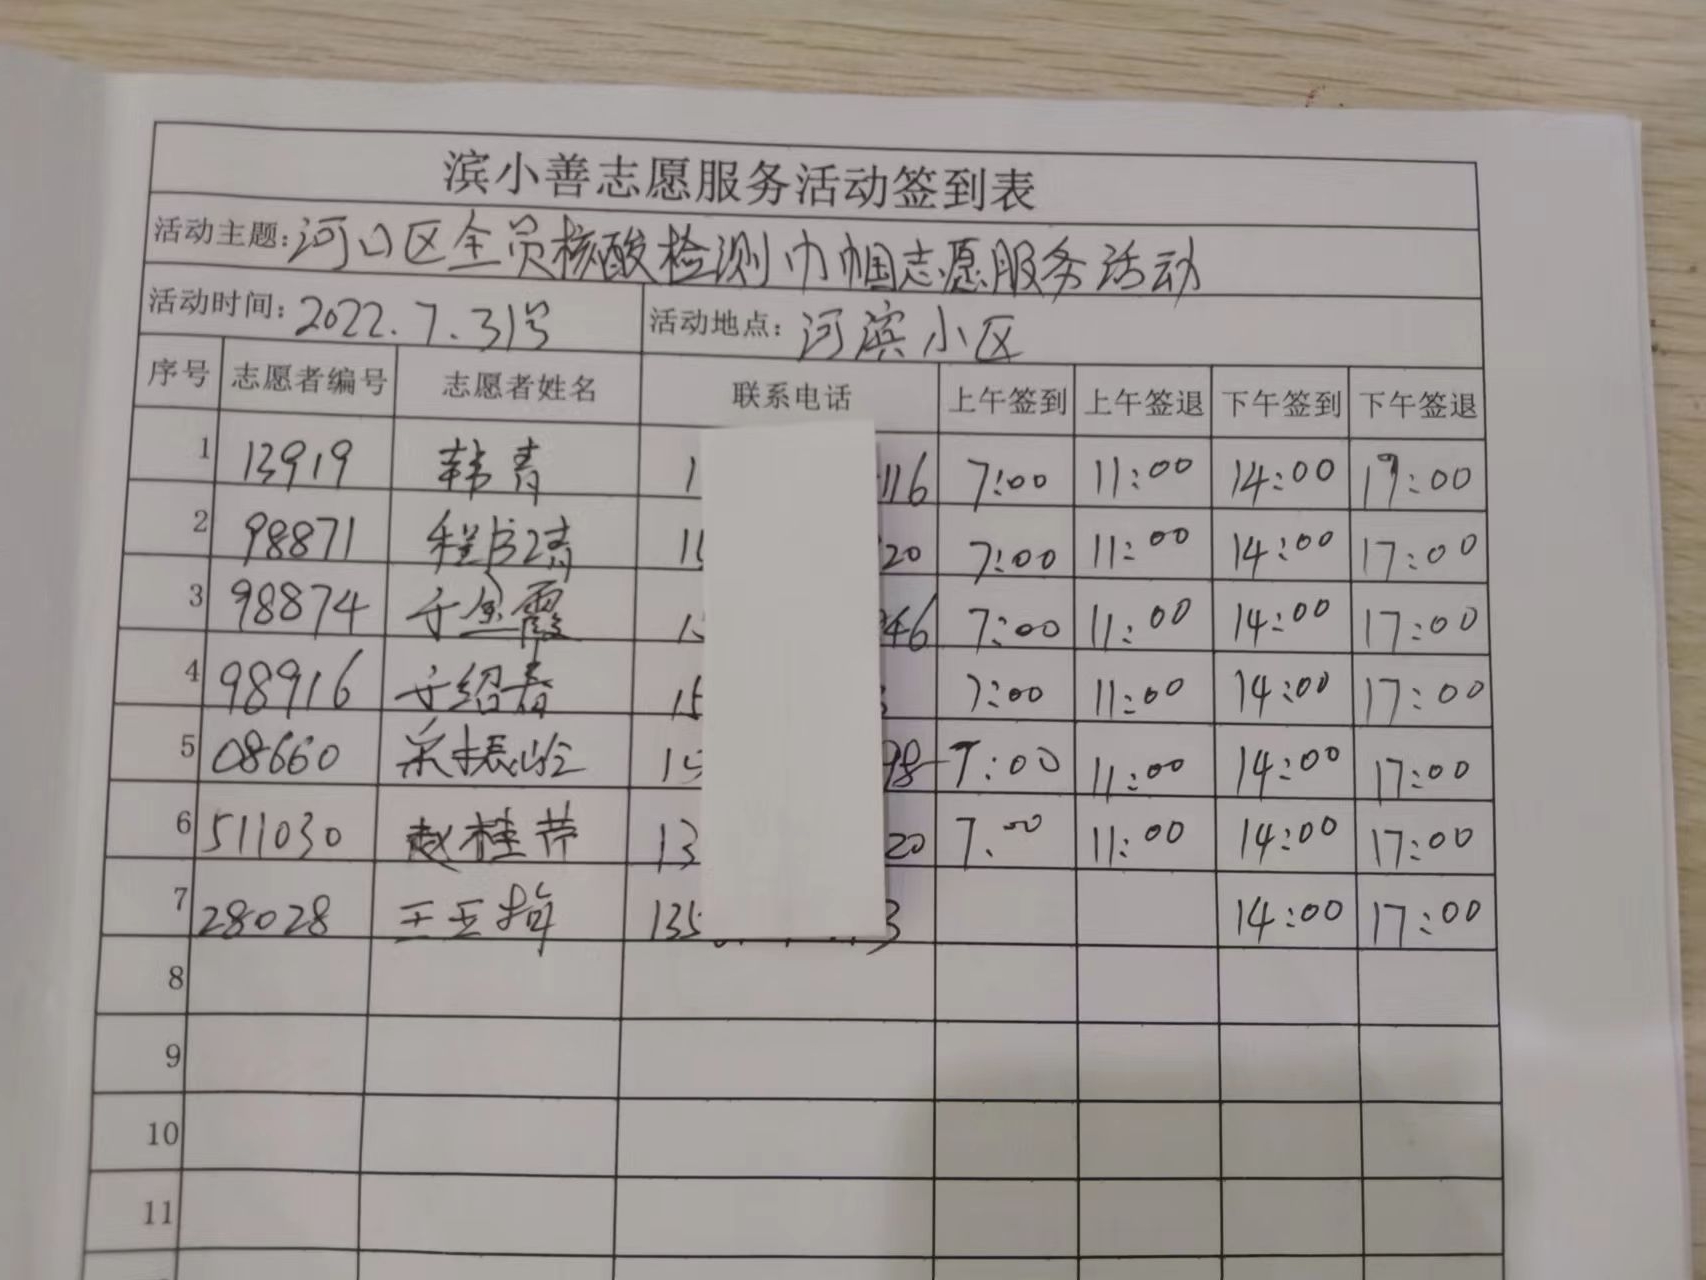 滨小善志愿服务活动签到表
活动主题:河口区全员核酸检测巾帼志愿服务活动
活动时间:2022.7.31号 活动地点:河滨小区
序号 志愿者编号 志愿者姓名 联系电话 上午签到 上午签退 下午签到 下午签退
1 13919 韩青 1 116 7:00 11:00 14:00 17:00
2 98871 程书靖 20 7:00 11:00 14:00 17:00
3 98874 于金霞 1 46 7:00 11:00 14:00 17:00
4 98916 于绍春 15 7:00 11:00 14:00 17:00
5 08660 1 98 7:00 11:00 14:00 17:00
6 511030 赵桂芹 13 20 7:00 11:00 14:00 17:00
7 28028 王玉 135 3 14:00 17:00
8
9
10
11